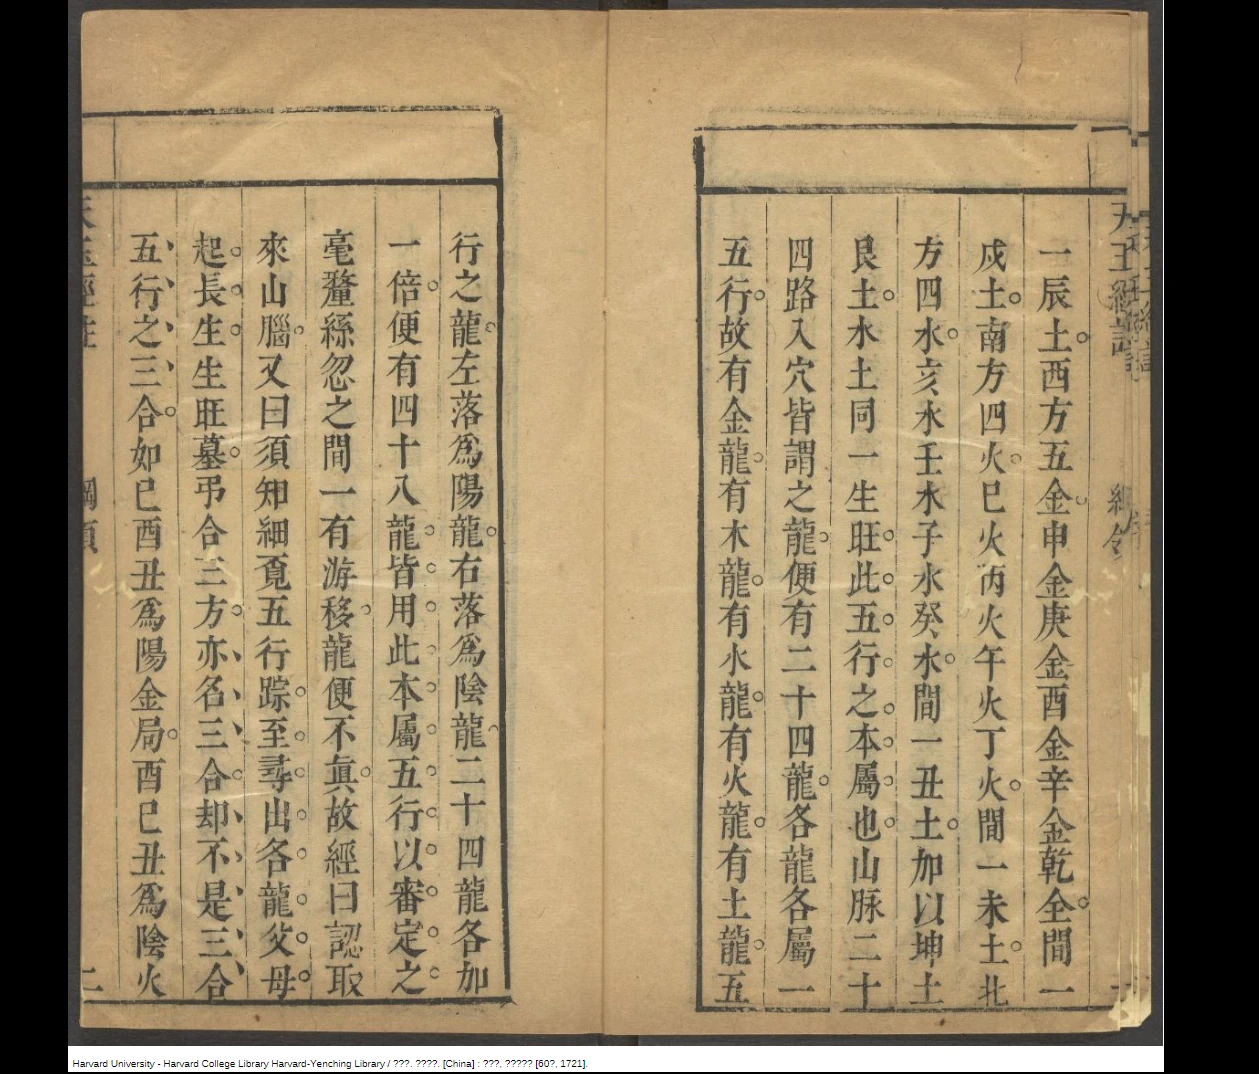 一辰土西方五金申金庚金酉金辛金乾全間一
戍土南方四火巳火丙火午火丁火間一未土北
方四水亥水壬水子水癸水間一丑土加以坤土
艮土水土同一生旺此五行之本屬也山脉二十
四路入穴皆謂之龍便有二十四龍各龍各屬一
五行故有金龍有木龍有水龍有火龍有土龍五
行之龍左落爲陽龍右落爲陰龍二十四龍各加
一倍便有四十八龍皆用此本屬五行以審定之
毫釐絲忽之間一有游移龍便不眞故經曰認取
來山腦又曰須知細覔五行踪至尋出各龍父母
起長生生旺墓弔合三方亦名三合却不是三合
五行之三合如巳酉丑爲陽金局酉巳丑爲陰火
Harvard University - Harvard College Library Harvard-Yenching Library / ???. ????. [China] : ???, ????? [60?, 1721].